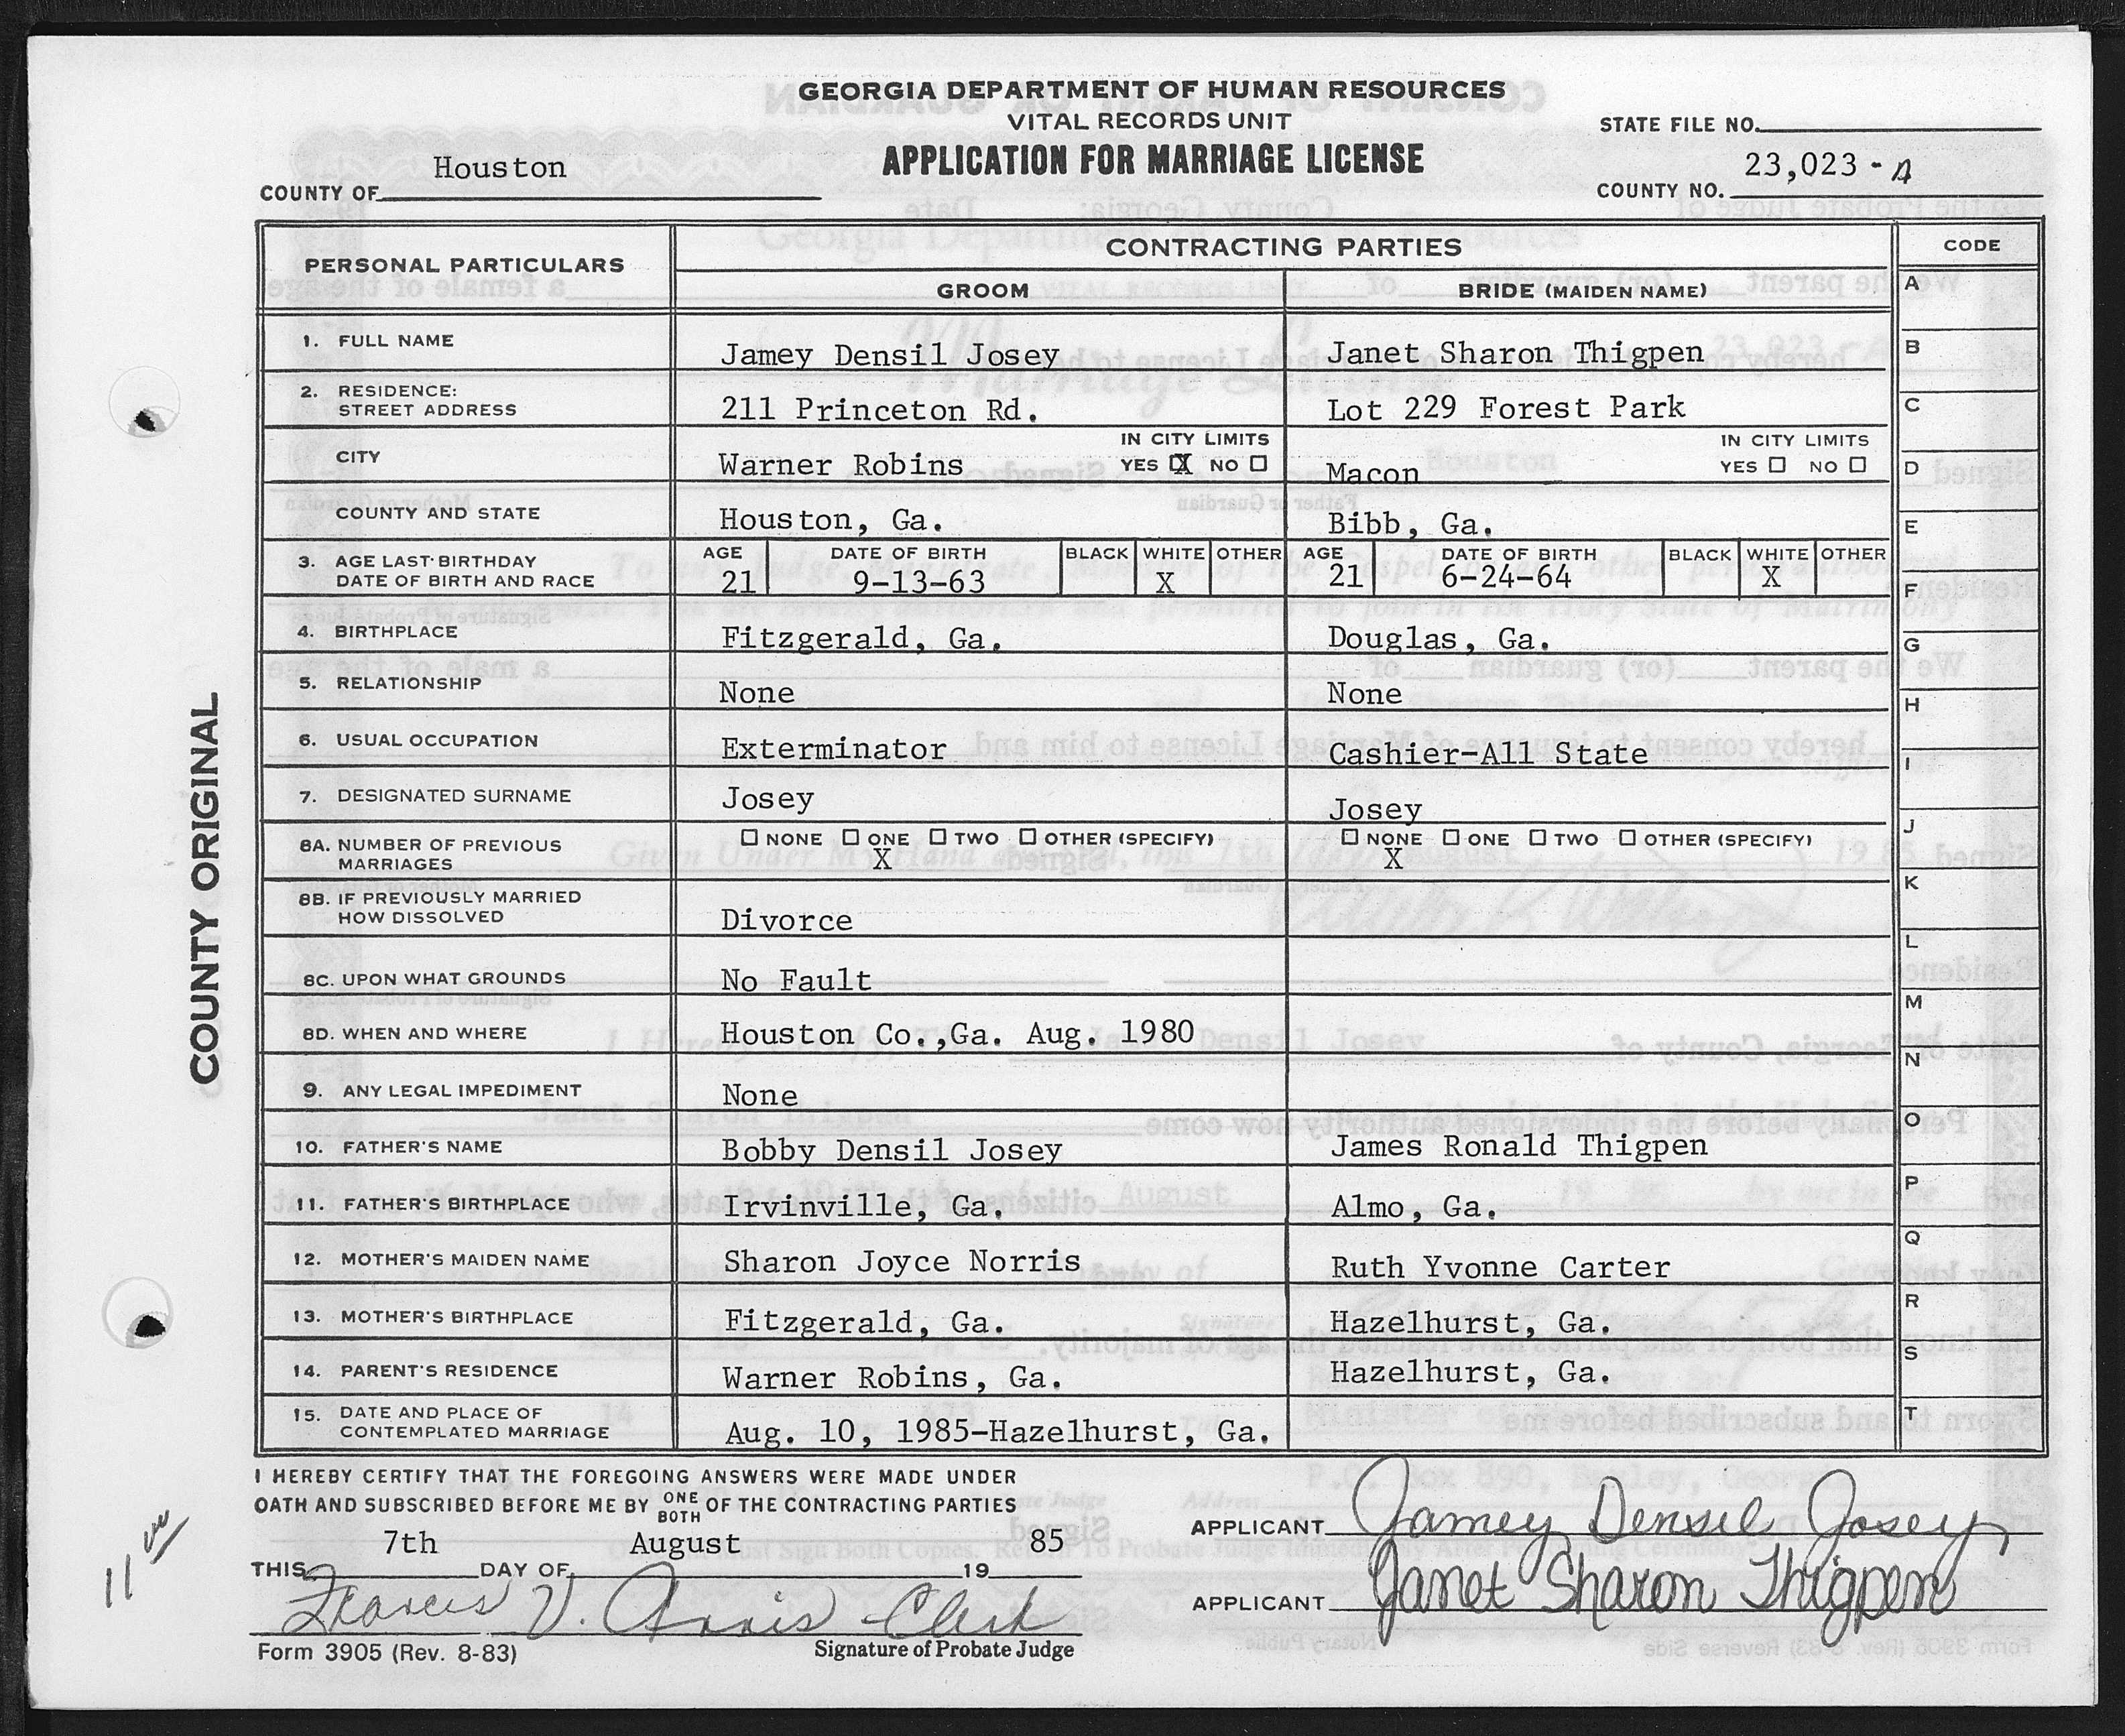 GEORGIA DEPARTMENT OF HUMAN RESOURCES
VITAL RECORDS UNIT
APPLICATION FOR MARRIAGE LICENSE
STATE FILE NO.
COUNTY OF Houston
COUNTY NO. 23,023 - A
PERSONAL PARTICULARS CONTRACTING PARTIES CODE
GROOM BRIDE (MAIDEN NAME) A
1. FULL NAME Jamey Densil Josey Janet Sharon Thigpen B
2. RESIDENCE:
STREET ADDRESS 211 Princeton Rd. Lot 229 Forest Park C
IN CITY LIMITS IN CITY LIMITS
CITY Warner Robins YES ☒ NO ☐ Macon YES ☐ NO ☐ D
COUNTY AND STATE Houston, Ga. Bibb, Ga. E
3. AGE LAST BIRTHDAY AGE DATE OF BIRTH BLACK WHITE OTHER AGE DATE OF BIRTH BLACK WHITE OTHER
DATE OF BIRTH AND RACE 21 9-13-63 X 21 6-24-64 X F
4. BIRTHPLACE Fitzgerald, Ga. Douglas, Ga. G
5. RELATIONSHIP None None H
6. USUAL OCCUPATION Exterminator Cashier-All State I
7. DESIGNATED SURNAME Josey Josey
8A. NUMBER OF PREVIOUS ☐ NONE ☐ ONE ☐ TWO ☐ OTHER (SPECIFY) ☐ NONE ☐ ONE ☐ TWO ☐ OTHER (SPECIFY) J
MARRIAGES X X
8B. IF PREVIOUSLY MARRIED K
HOW DISSOLVED Divorce
L
8C. UPON WHAT GROUNDS No Fault
M
8D. WHEN AND WHERE Houston Co.,Ga. Aug. 1980
N
9. ANY LEGAL IMPEDIMENT None
O
10. FATHER'S NAME Bobby Densil Josey James Ronald Thigpen
P
11. FATHER'S BIRTHPLACE Irvinville, Ga. Almo, Ga.
Q
12. MOTHER'S MAIDEN NAME Sharon Joyce Norris Ruth Yvonne Carter
R
13. MOTHER'S BIRTHPLACE Fitzgerald, Ga. Hazelhurst, Ga.
S
14. PARENT'S RESIDENCE Warner Robins, Ga. Hazelhurst, Ga.
T
15. DATE AND PLACE OF
CONTEMPLATED MARRIAGE Aug. 10, 1985-Hazelhurst, Ga.
COUNTY ORIGINAL
I HEREBY CERTIFY THAT THE FOREGOING ANSWERS WERE MADE UNDER
OATH AND SUBSCRIBED BEFORE ME BY ONE BOTH OF THE CONTRACTING PARTIES
THIS 7th DAY OF August 19 85
APPLICANT Jamey Densil Josey
APPLICANT Janet Sharon Thigpen
Frances V. Annis Clerk
Signature of Probate Judge
Form 3905 (Rev. 8-83)